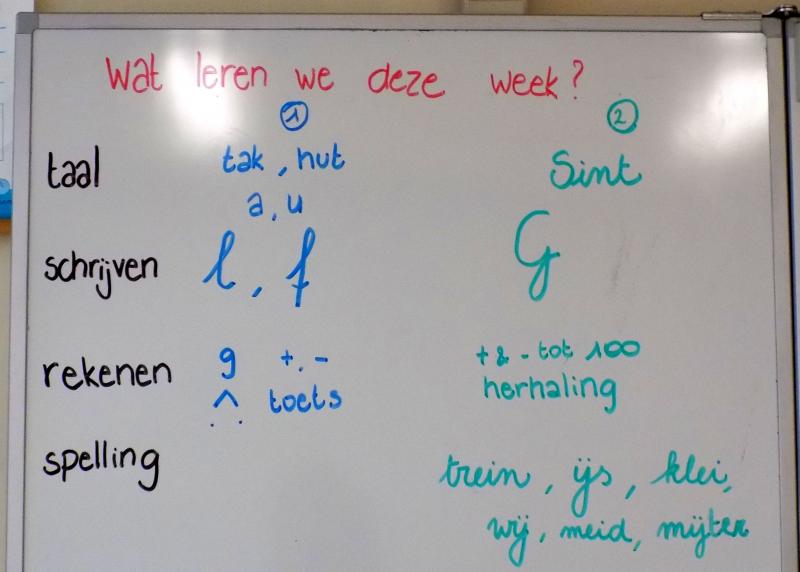 Wat leren we deze week?
1 2
taal tak, hut Sint
a, u
schrijven l, f G
rekenen 9 +, - + & - tot 100
^ toets herhaling
. .
spelling trein, ijs, klei,
wij, meid, mijter